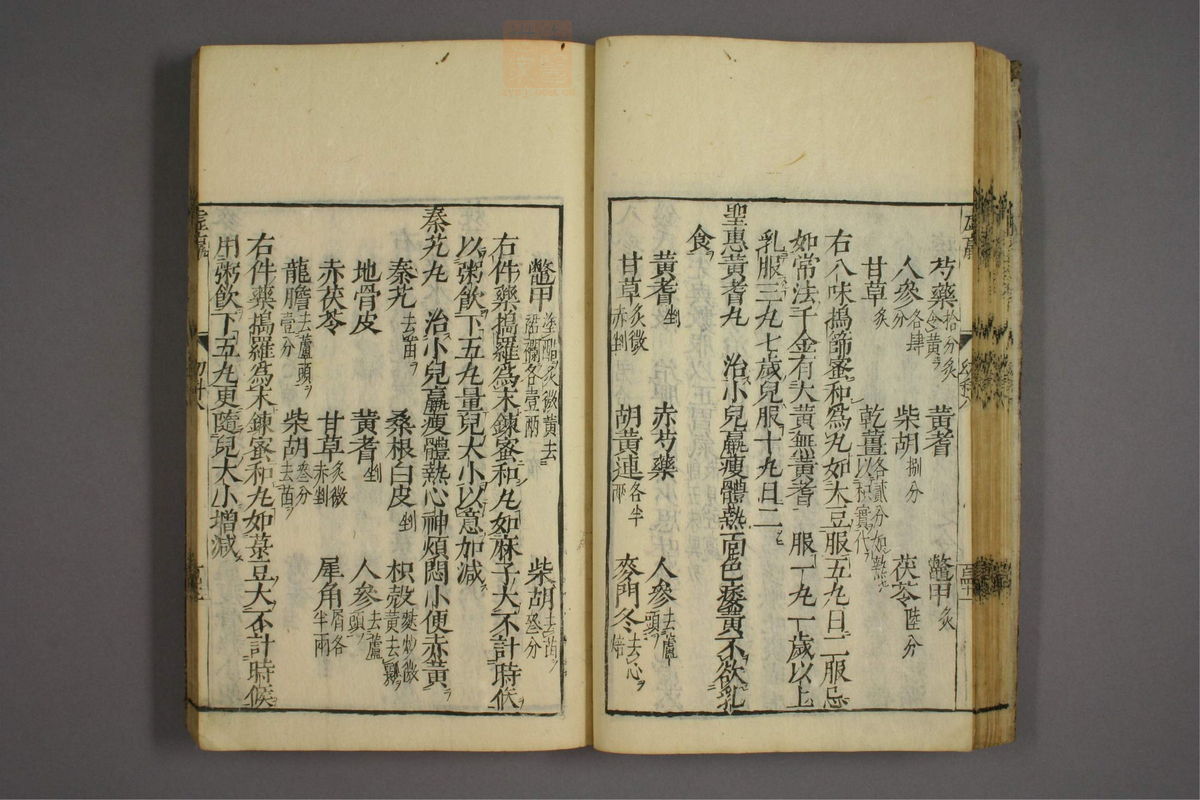 芍藥拾分炙令黃ヲ 黃耆 鼈甲炙
人參各肆分 柴胡捌分 茯苓陸分
甘草炙 乾薑各貳分如熱以枳實代
右八味搗篩蜜和為丸如大豆服五丸日二服忌
如常法千金有大黃無黃耆一服一丸一歲以上
乳服三丸七歲兒服十丸日二
聖惠黃耆丸 治小兒羸瘦體熱面色痿黃不欲乳
食
黃耆剉 赤芍藥 人參去蘆頭ヲ
甘草炙微赤剉 胡黃連各半兩 麥門冬去心ヲ焙
鼈甲塗醋炙微黃去裙襴各壹兩 柴胡去苗ヲ叄分
右件藥搗羅為末鍊蜜和丸如麻子大不計時候
以粥飲下五丸量兒大小以意加減
秦艽丸 治小兒羸瘦體熱心神煩悶小便赤黃
秦艽去苗ヲ 桑根白皮剉 枳殼麩炒微黃去瓤ヲ
地骨皮 黃耆剉 人參去蘆頭ヲ
赤茯苓 甘草炙微赤剉 犀角屑各半兩
龍膽去蘆頭ヲ壹分 柴胡去苗ヲ叄分
右件藥搗羅為末鍊蜜和丸如菉豆大不計時候
用粥飲下五丸更隨兒大小增減